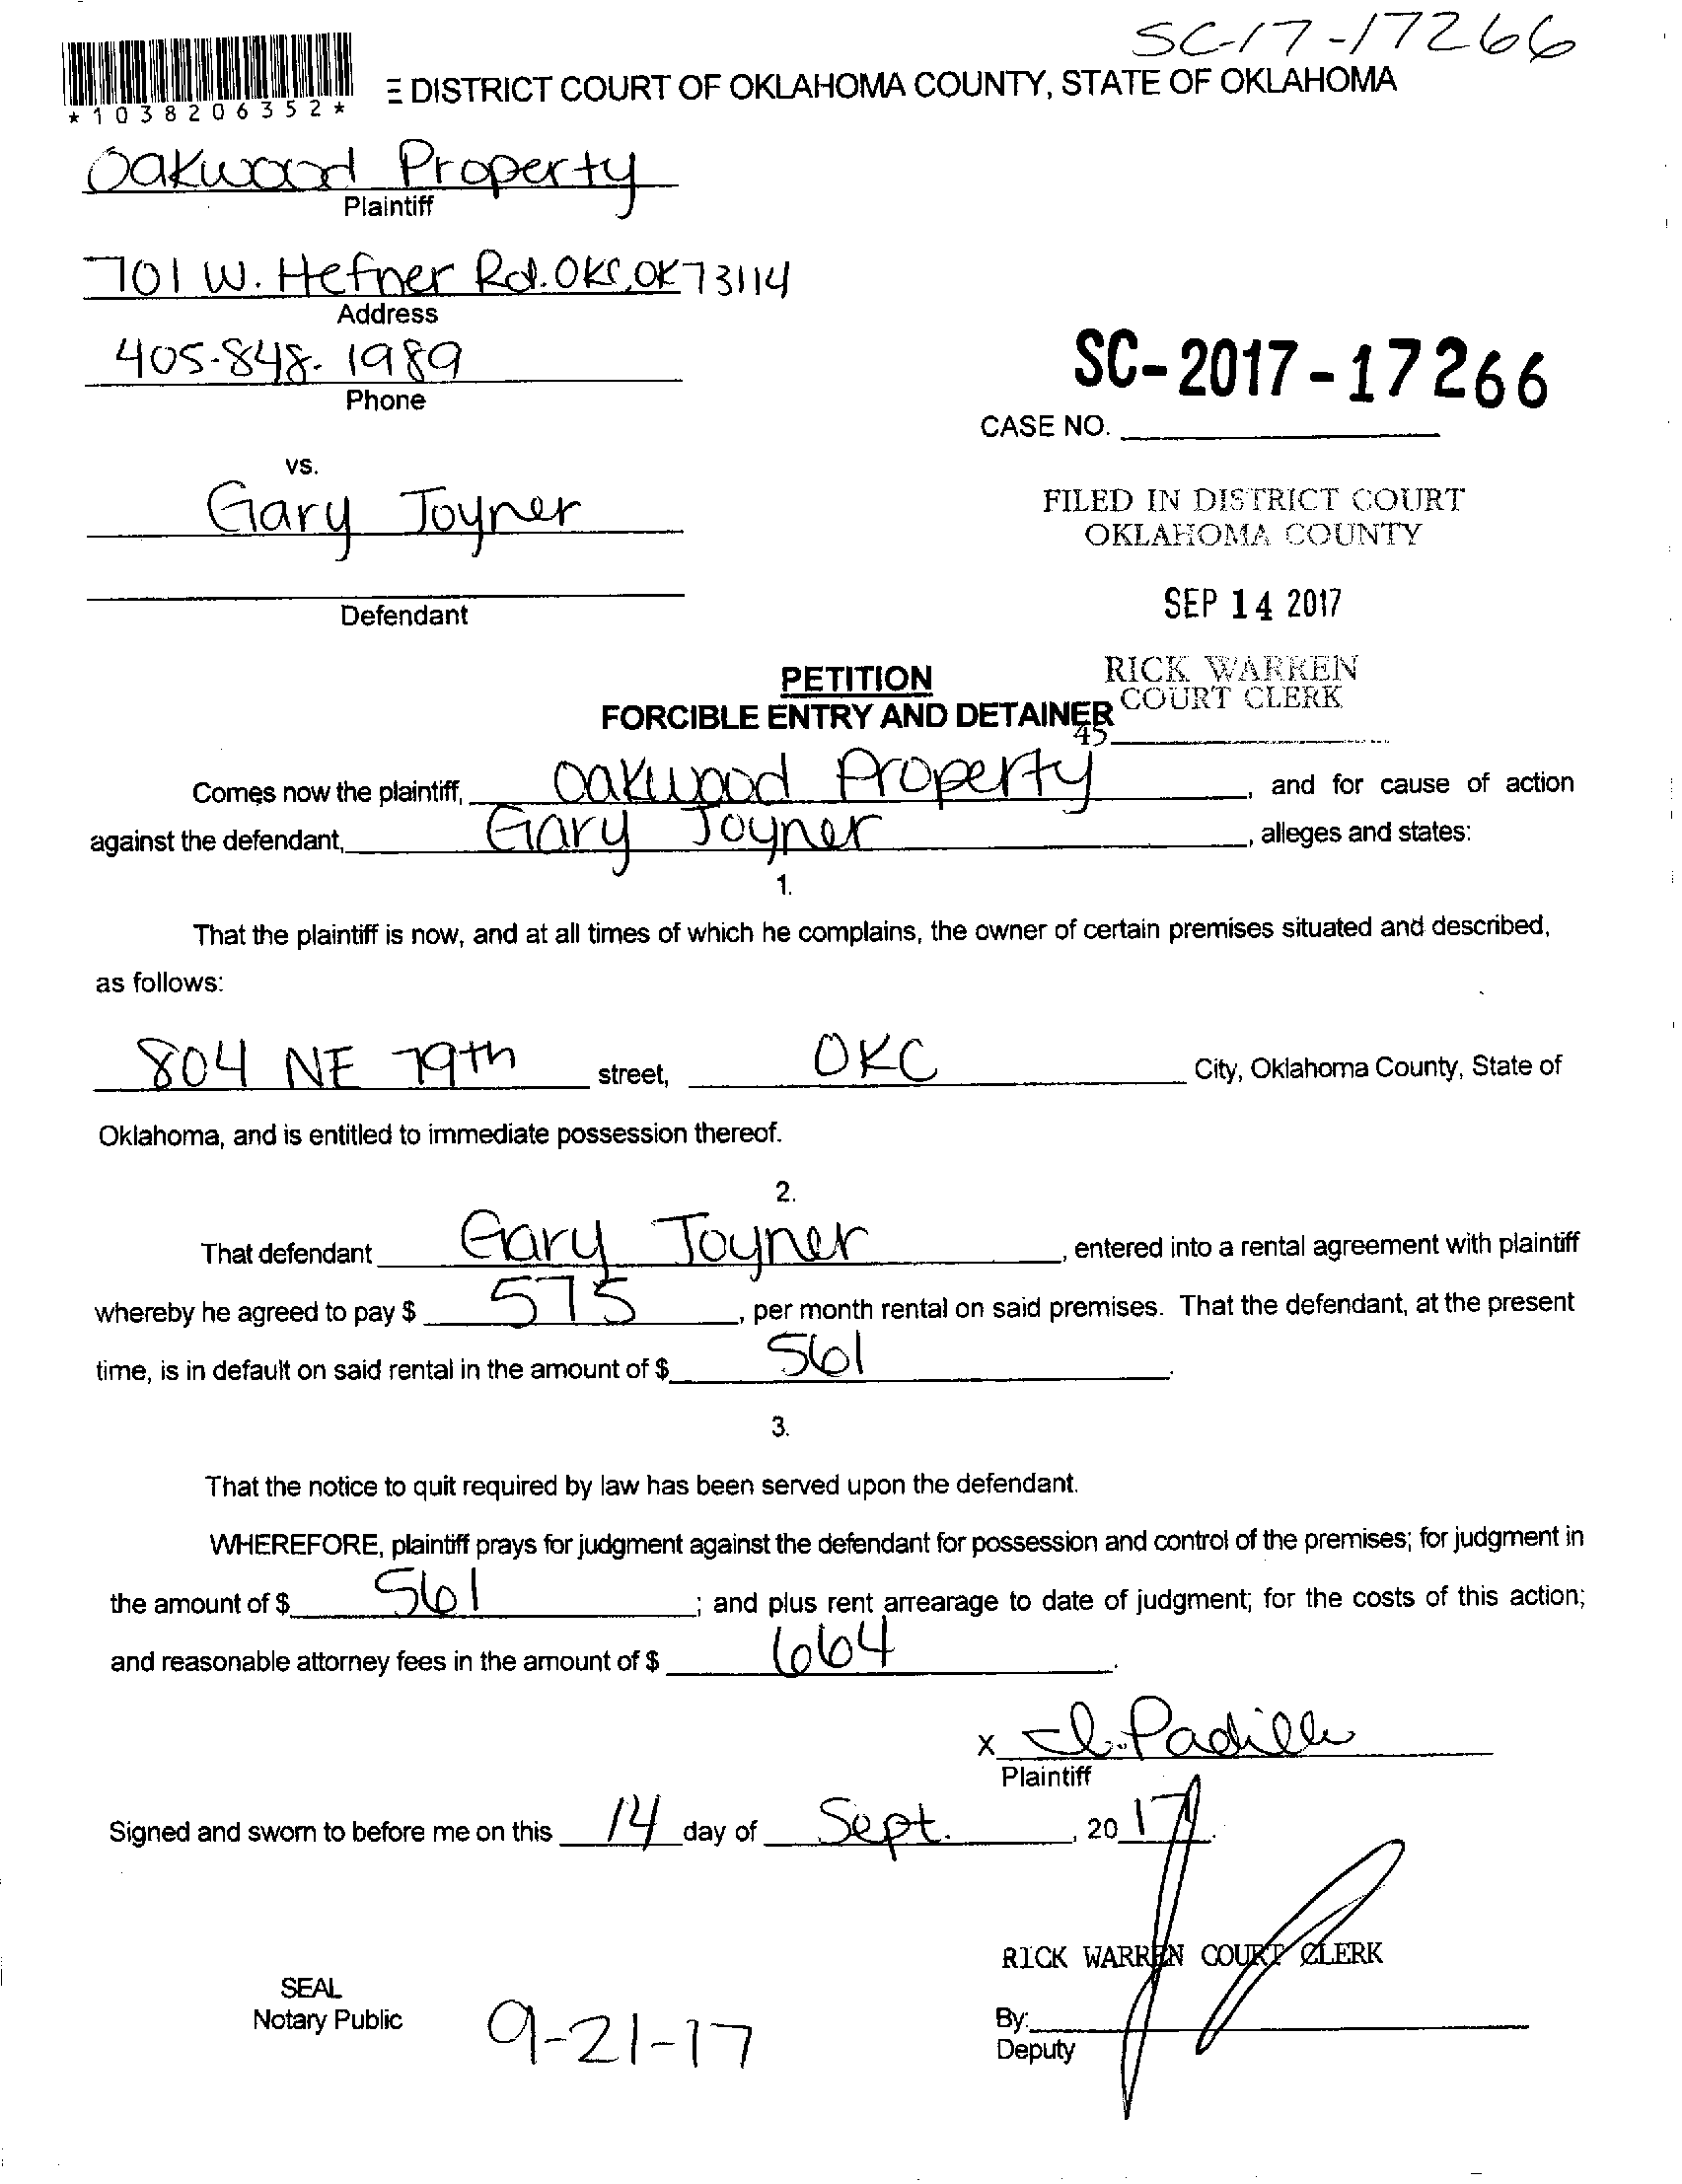 SC-17-17266
DISTRICT COURT OF OKLAHOMA COUNTY, STATE OF OKLAHOMA
*1038206352*
Oakwood Property
Plaintiff
701 W. Hefner Rd. OKC, OK 73114
Address
405-848-1989
Phone
SC-2017-17266
CASE NO.
vs.
Gary Joyner
FILED IN DISTRICT COURT
OKLAHOMA COUNTY
Defendant
SEP 14 2017
PETITION
RICK WARREN
COURT CLERK
FORCIBLE ENTRY AND DETAINER
45
Comes now the plaintiff, Oakwood Property, and for cause of action
against the defendant, Gary Joyner, alleges and states:
1.
That the plaintiff is now, and at all times of which he complains, the owner of certain premises situated and described,
as follows:
804 NE 79th street, OKC City, Oklahoma County, State of
Oklahoma, and is entitled to immediate possession thereof.
2.
That defendant Gary Joyner, entered into a rental agreement with plaintiff
whereby he agreed to pay $ 575, per month rental on said premises. That the defendant, at the present
time, is in default on said rental in the amount of $ 561.
3.
That the notice to quit required by law has been served upon the defendant.
WHEREFORE, plaintiff prays for judgment against the defendant for possession and control of the premises; for judgment in
the amount of $ 561; and plus rent arrearage to date of judgment; for the costs of this action;
and reasonable attorney fees in the amount of $ 664.
x I. Padilla
Plaintiff
Signed and sworn to before me on this 14 day of Sept., 2017.
RICK WARREN COURT CLERK
SEAL
Notary Public
9-21-17
By:
Deputy